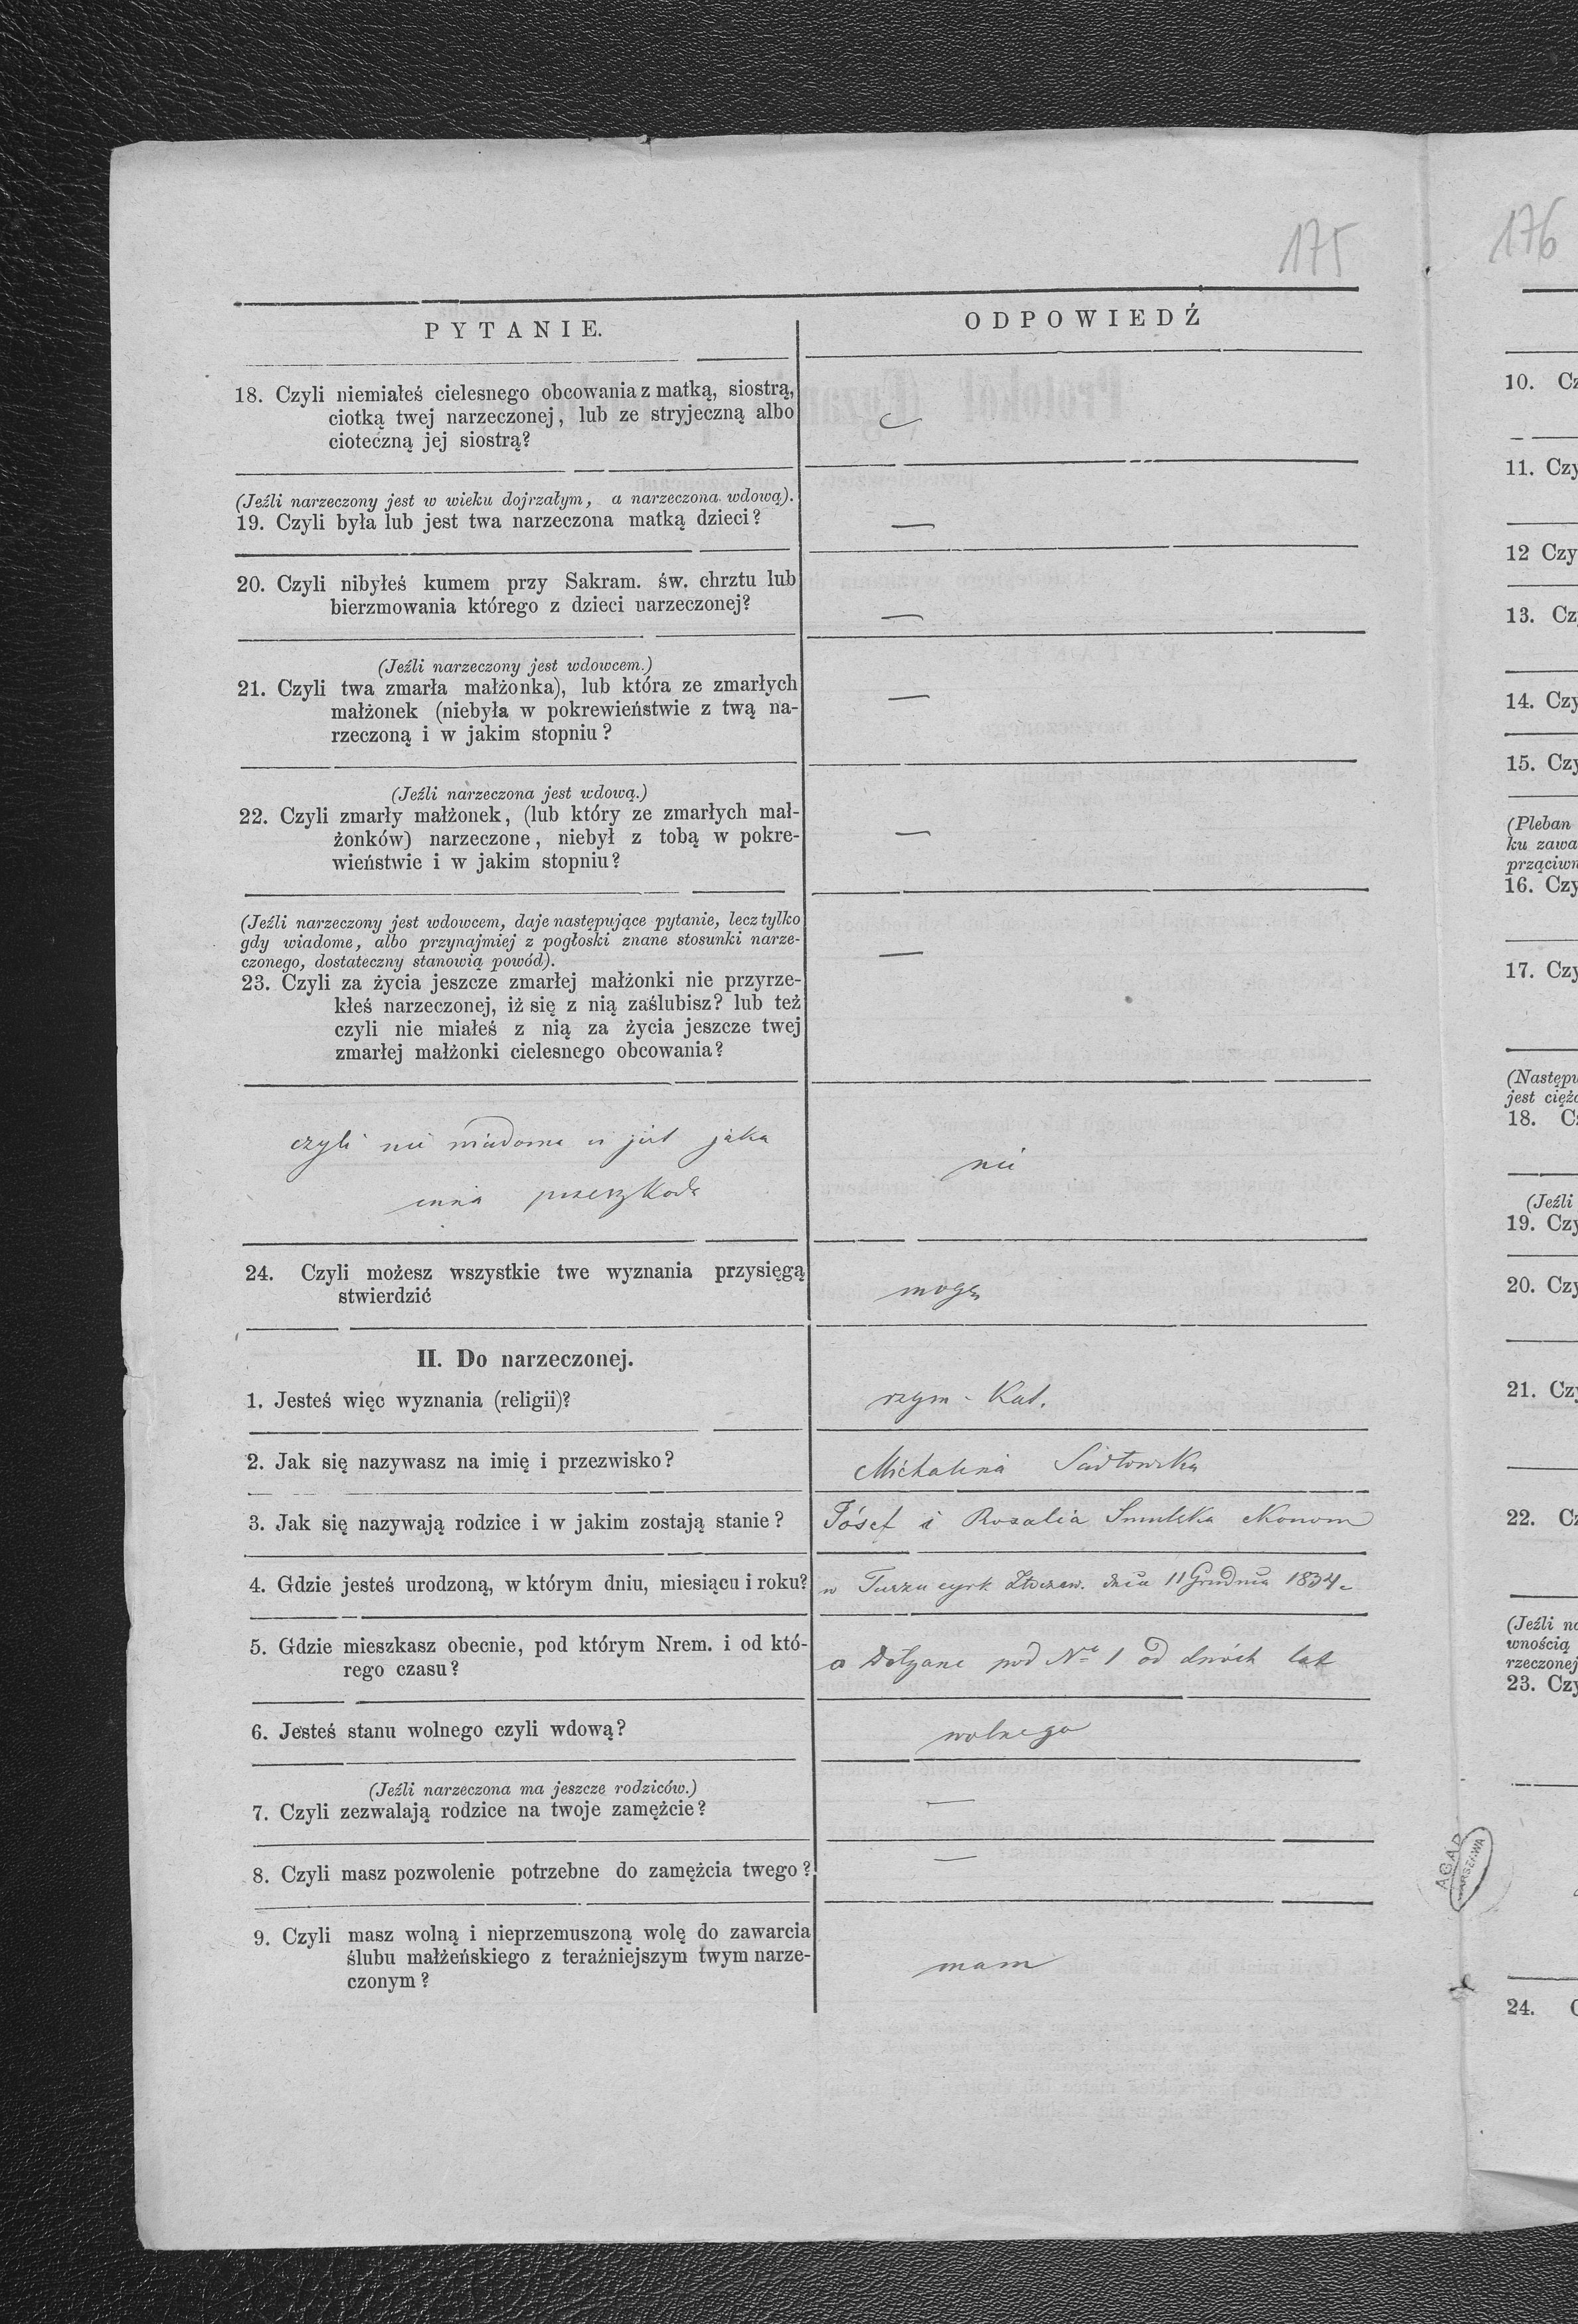 175
176
PYTANIE.
ODPOWIEDŹ
18. Czyli niemiałeś cielesnego obcowania z matką, siostrą,
ciotką twej narzeczonej, lub ze stryjeczną albo
cioteczną jej siostrą?
—
(Jeźli narzeczony jest w wieku dojrzałym, a narzeczona wdową).
19. Czyli była lub jest twa narzeczona matką dzieci?
—
20. Czyli nibyłeś kumem przy Sakram. św. chrztu lub
bierzmowania którego z dzieci narzeczonej?
—
(Jeźli narzeczony jest wdowcem.)
21. Czyli twa zmarła małżonka), lub która ze zmarłych
małżonek (niebyła w pokrewieństwie z twą na-
rzeczoną i w jakim stopniu?
—
(Jeźli narzeczona jest wdową.)
22. Czyli zmarły małżonek, (lub który ze zmarłych mał-
żonków) narzeczone, niebył z tobą w pokre-
wieństwie i w jakim stopniu?
—
(Jeźli narzeczony jest wdowcem, daje następujące pytanie, lecz tylko
gdy wiadome, albo przynajmiej z pogłoski znane stosunki narze-
czonego, dostateczny stanowią powód).
23. Czyli za życia jeszcze zmarłej małżonki nie przyrze-
kłeś narzeczonej, iż się z nią zaślubisz? lub też
czyli nie miałeś z nią za życia jeszcze twej
zmarłej małżonki cielesnego obcowania?
—
czyli nie wiadoma ci jest jaka
inna przeszkoda
nie
24. Czyli możesz wszystkie twe wyznania przysięgą
stwierdzić
mogę
II. Do narzeczonej.
1. Jesteś więc wyznania (religii)?
rzym-Kat.
2. Jak się nazywasz na imię i przezwisko?
Michalina
3. Jak się nazywają rodzice i w jakim zostają stanie?
Józef i Rozalia ekonom
4. Gdzie jesteś urodzoną, w którym dniu, miesiącu i roku?
w cyrk. dnia 11 Grudnia 1834
5. Gdzie mieszkasz obecnie, pod którym Nrem. i od któ-
rego czasu?
pod Nro 1 od dwóch lat
6. Jesteś stanu wolnego czyli wdową?
wolnego
(Jeźli narzeczona ma jeszcze rodziców.)
7. Czyli zezwalają rodzice na twoje zamężcie?
—
8. Czyli masz pozwolenie potrzebne do zamężcia twego?
—
9. Czyli masz wolną i nieprzemuszoną wolę do zawarcia
ślubu małżeńskiego z teraźniejszym twym narze-
czonym?
mam
10. Cz
11. Czy
12 Czy
13. Cz
14. Czy
15. Czy
(Pleban
ku zawa
prząciwn
16. Czy
17. Czy
(Następu
jest cięż
18. C
(Jeźli
19. Czy
20. Czy
21. Czy
22. Cz
(Jeźli na
wnością
rzeczonej
23. Czy
AGAD
WARSZAWA
24. C